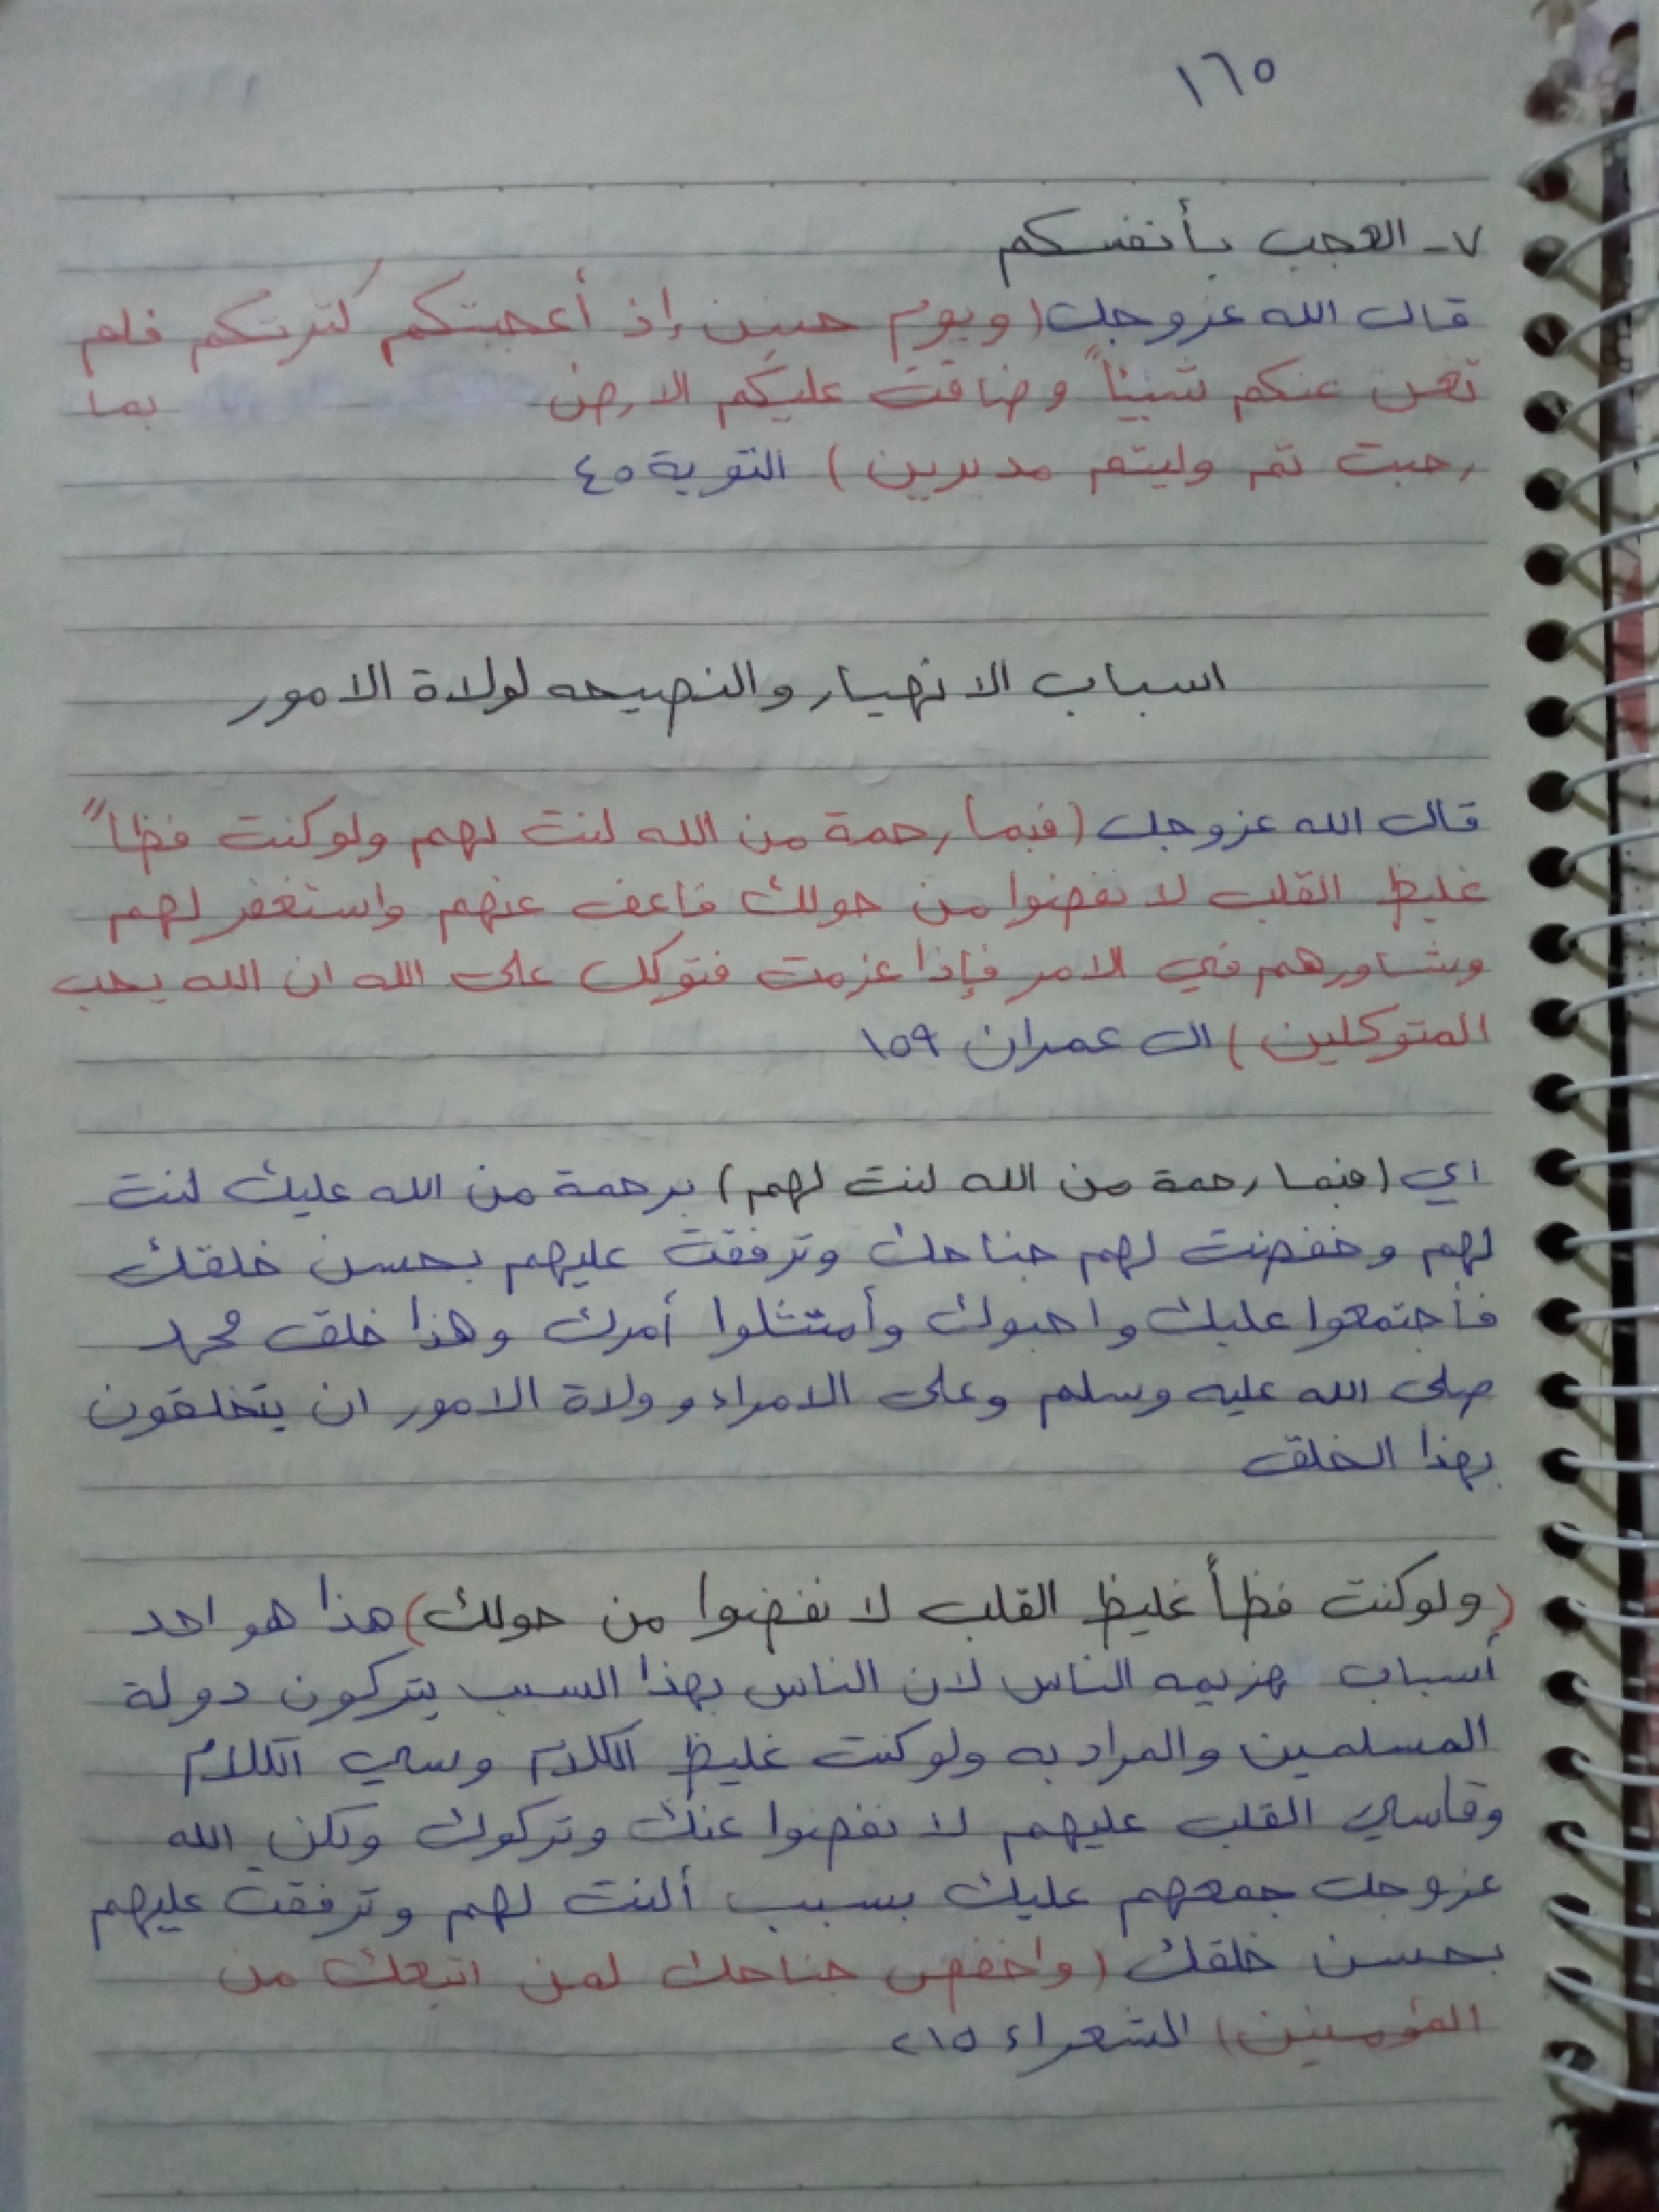 ١٦٥
٧- العجب بأنفسكم
قال الله عزوجل (ويوم حنين إذ أعجبتكم كثرتكم فلم
تغن عنكم شيئاً وضاقت عليكم الارض بما
رحبت ثم وليتم مدبرين) التوبة ٤٥
اسباب الانهيار والنصيحه لولاة الامور
قال الله عزوجل (فبما رحمة من الله لنت لهم ولو كنت فظاً
غليظ القلب لانفضوا من حولك فاعف عنهم واستغفر لهم
وشاورهم في الامر فإذا عزمت فتوكل على الله ان الله يحب
المتوكلين) ال عمران ١٥٩
اي (فبما رحمة من الله لنت لهم) برحمة من الله عليك لنت
لهم وخفضت لهم جناحك وترفقت عليهم بحسن خلقك
فأجتمعوا عليك واحبوك وأمتثلوا أمرك وهذا خلق محمد
صلى الله عليه وسلم وعلى الامراء وولاة الامور ان يتخلقون
بهذا الخلق
(ولو كنت فظأ غليظ القلب لانفضوا من حولك) هذا هو احد
أسباب هزيمه الناس لان الناس بهذا السبب يتركون دولة
المسلمين والمراد به ولو كنت غليظ الكلام وسي الكلام
وقاسي القلب عليهم لانفضوا عنك وتركوك ولكن الله
عزوجل جمعهم عليك بسبب ألنت لهم وترفقت عليهم
بحسن خلقك (واخفض جناحك لمن اتبعك من
المؤمنين) الشعراء ٢١٥